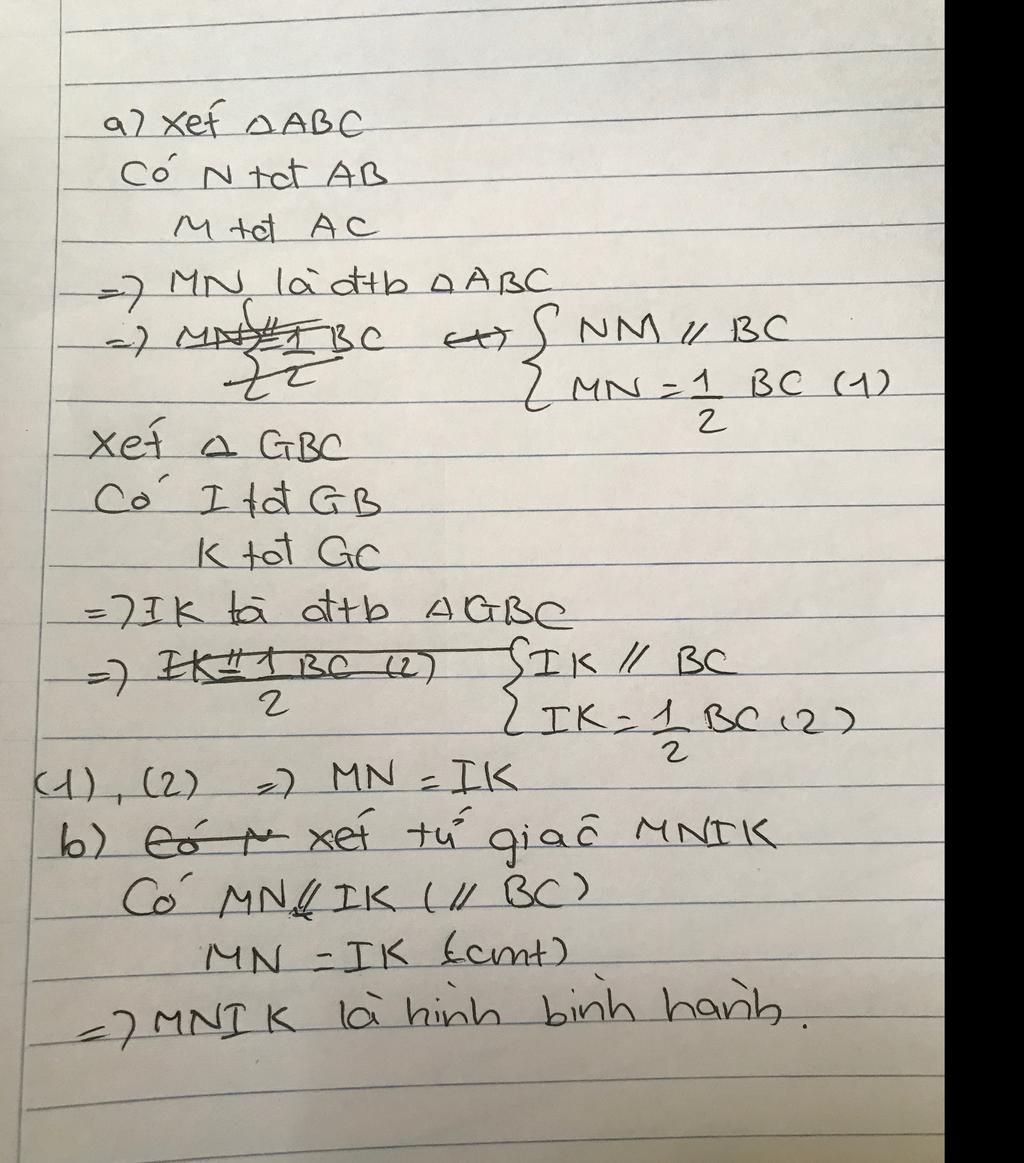 a) xét △ABC
Có N tđ AB
M tđ AC
=> MN là đtb △ABC
=> MN // = 1/2 BC <=> { NM // BC
{ MN = 1/2 BC (1)
xét △ GBC
Có I tđ GB
K tđ GC
=> IK là đtb △GBC
=> IK // = 1/2 BC (2) { IK // BC
{ IK = 1/2 BC (2)
(1), (2) => MN = IK
b) Có N xét tứ giác MNIK
Có MN // IK (// BC)
MN = IK (cmt)
=> MNIK là hình bình hành.